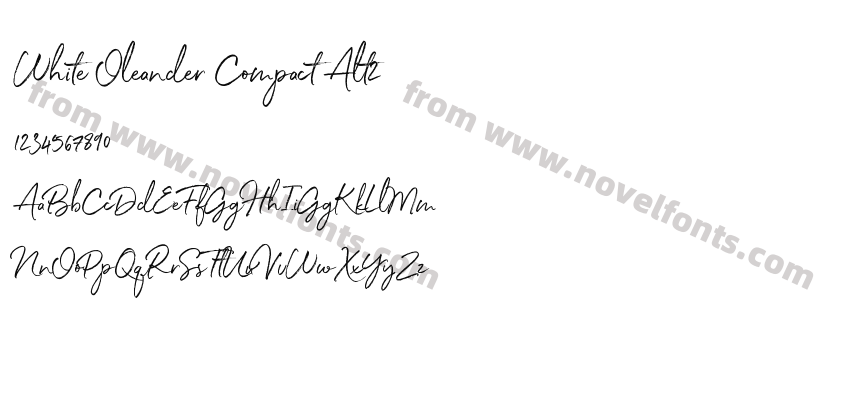 White Oleander Compact Alt2
1234567890
AaBbCcDdEeFfGgHhIiGgKkLlMm
NnOoPpQqRrSsTtUuVvWwXxYyZz
from www.novelfonts.com
from www.novelfonts.com